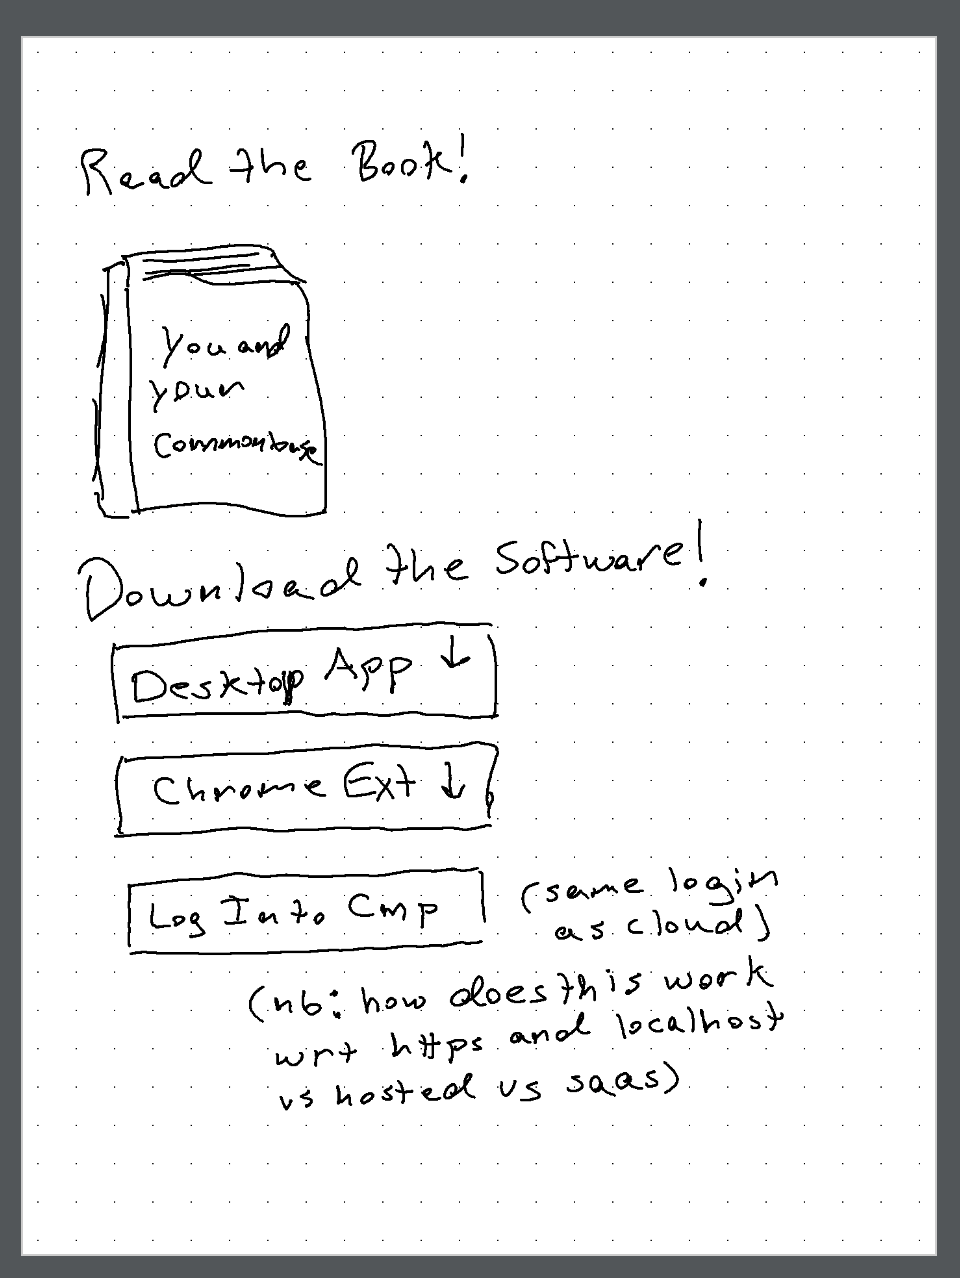 Read the Book!
You and
your
Commonbase
Download the Software!
Desktop App ↓
Chrome Ext ↓
Log Into Cmp
(same login
as cloud)
(nb: how does this work
wrt https and localhost
vs hosted vs saas)